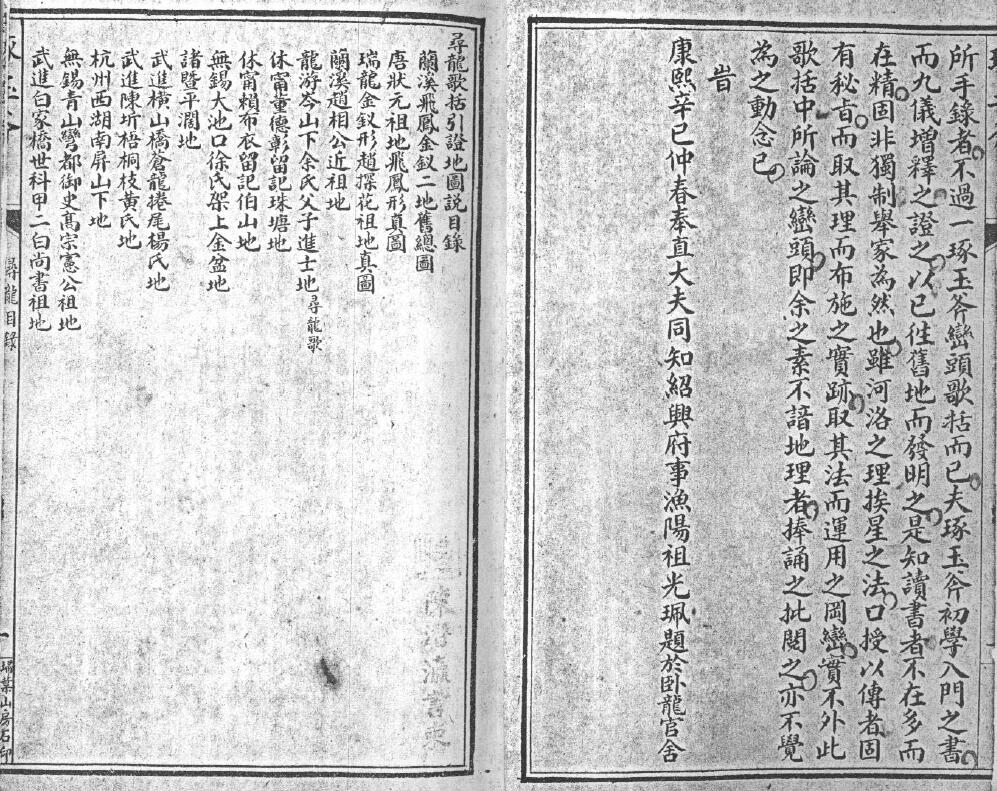 所手錄者不過一琢玉斧巒頭歌括而已夫琢玉斧初學入門之書
而九儀增釋之證之以已徃舊地而發明之是知讀書者不在多而
在精固非獨制舉家為然也雖河洛之理挨星之法口授以傳者固
有秘旨而取其理而布施之實跡取其法而運用之岡巒實不外此
歌括中所論之巒頭即余之素不諳地理者捧誦之批閱之亦不覺
為之動念已
旹
康熙辛巳仲春奉直大夫同知紹興府事漁陽祖光珮題於卧龍官舍
尋龍歌括引證地圖説目錄
蘭溪飛鳳金釵二地舊總圖
唐狀元祖地飛鳳形真圖
瑞龍金釵形趙探花祖地真圖
蘭溪趙相公近祖地
龍游岑山下余氏父子進士地尋龍歌
休甯董德彰留記珠塘地
休甯賴布衣留記伯山地
無錫大池口徐氏架上金盆地
諸暨平濶地
武進橫山橋倉龍捲尾楊氏地
武進陳圻梧桐枝黃氏地
杭州西湖南屏山下地
無錫青山彎都御史高宗憲公祖地
武進白家橋世科甲二白尚書祖地
尋龍目錄
埽葉山房石印